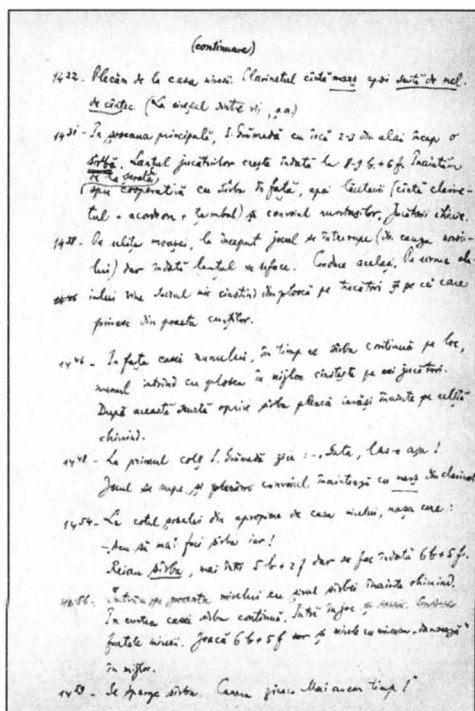 (continuare)
14 22 - Plecăm de la casa miresii. Clarinetul cîntă marș apoi suită de mel.
de cîntec (La
14 31 - În șoseaua principală, I. Grămadă cu încă 2-3 din alai încep o
sîrbă. Lanțul jucătorilor crește îndată la 8-9 b.+6 f. Înaintăm
de la șerată,
spre cooperativă cu sîrba în față, apoi (cîntă clarine-
tul - acordeon + țambal) și convoiul nuntașilor, jucătorii chiuie.
14 38 - Pe ulița moașei, la început jocul se întrerupe (din cauza noroiu-
lui) dar îndată lanțul se reface. Conduce același. Pe urma ala-
iului vine Socrul mic cinstind din ploscă pe trecători și pe cei care
privesc din poarta curților.
14 46 - În fața casei nunului, în timp ce sîrba continuă pe loc,
nunul intrînd cu plosca în mijloc cinstește pe toți jucătorii.
După această scurtă oprire sîrba pleacă iarăși înainte pe uliță
chiuind.
14 48 - La primul colț I. Grămadă zice : - Gata, las-o așa !
Jocul se rupe, și convoiul înaintează cu marș din clarinet
14 54 - La cotul școalei din apropierea de casa mirelui, nașa cere :
- Acu să mai faci sîrba iar !
Reiau sîrba, mai întîi 5 b + 2 f dar se fac îndată 6 b + 5 f.
14 56 - Intrăm pe poarta mirelui cu șirul sîrbei înainte chiuind.
În curtea casei sîrba continuă. Intră în joc
fratele miresii. Joacă 6 b + 5 f iar și mirele cu mireasa „dansează"
în mijloc.
14 59 - Se sparge sîrba. Cineva zice: Mai avem timp !